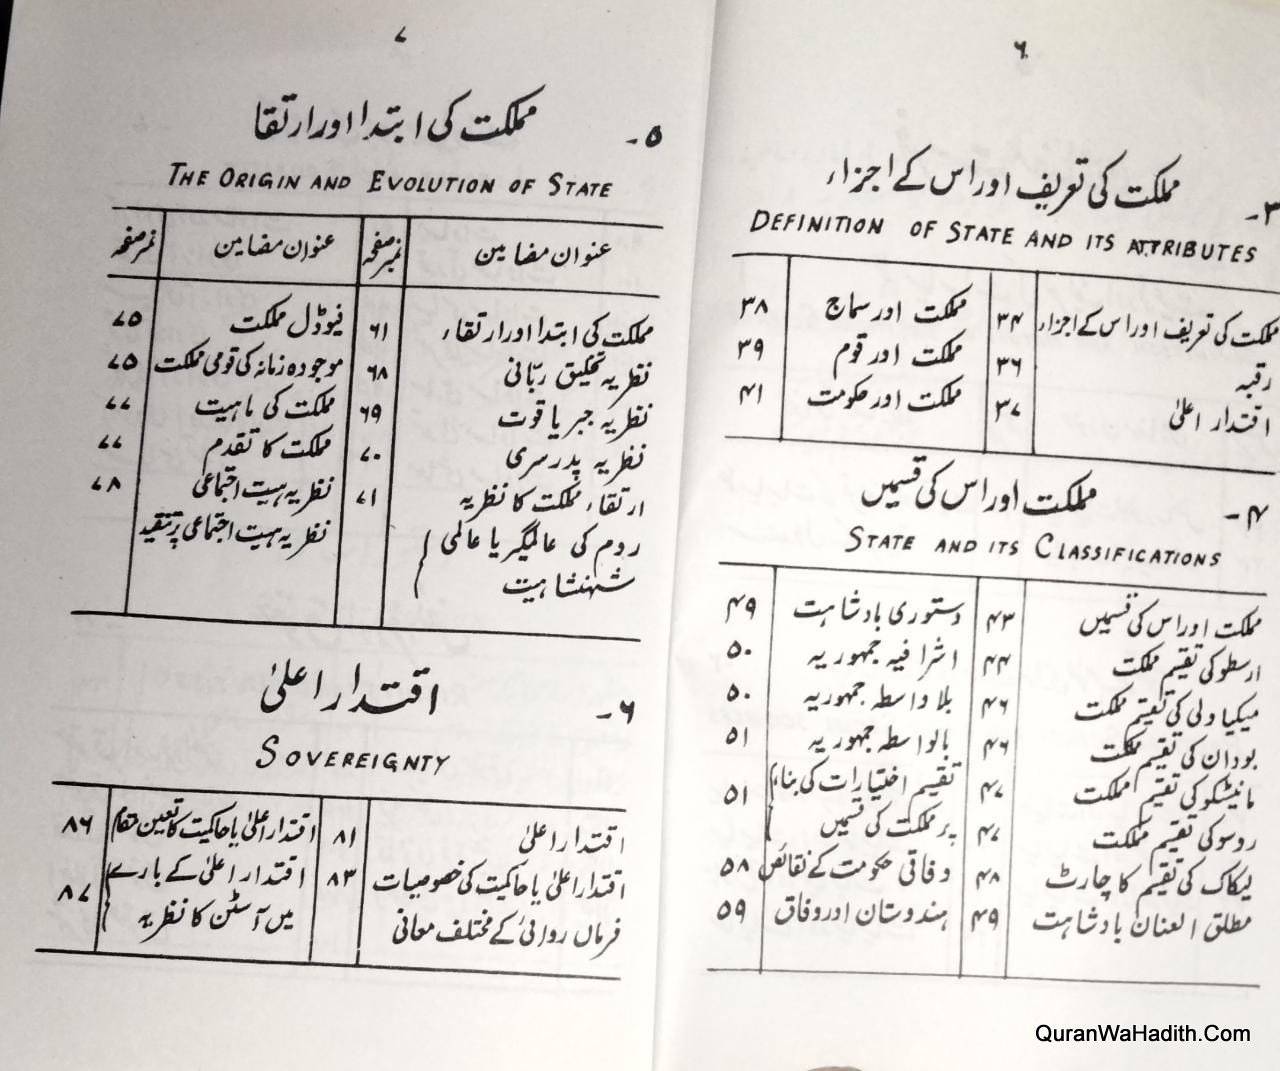 ۶
۳- مملکت کی تعریف اور اس کے اجزاء
DEFINITION OF STATE AND ITS ATTRIBUTES
مملکت کی تعریف اور اس کے اجزاء ۳۴ مملکت اور سماج ۳۸
رقبہ ۳۶ مملکت اور قوم ۳۹
اقتدار اعلیٰ ۳۷ مملکت اور حکومت ۴۱
۴- مملکت اور اس کی قسمیں
STATE AND ITS CLASSIFICATIONS
مملکت اور اس کی قسمیں ۴۳ دستوری بادشاہت ۴۹
ارسطو کی تقسیم مملکت ۴۴ اشرافیہ جمہوریہ ۵۰
میکیاولی کی تقسیم مملکت ۴۶ بلا واسطہ جمہوریہ ۵۰
بودان کی تقسیم مملکت ۴۶ بالواسطہ جمہوریہ ۵۱
مانٹیسکو کی تقسیم مملکت ۴۷ تقسیم اختیارات کی بناء
روسو کی تقسیم مملکت ۴۷ پر مملکت کی قسمیں ۵۱
لیکاک کی تقسیم کا چارٹ ۴۸ وفاقی حکومت کے نقائص ۵۸
مطلق العنان بادشاہت ۴۹ ہندوستان اور وفاق ۵۹
۷
۵- مملکت کی ابتدا اور ارتقا
THE ORIGIN AND EVOLUTION OF STATE
عنوان مضامین نمبر صفحہ عنوان مضامین نمبر صفحہ
مملکت کی ابتدا اور ارتقاء ۶۱ فیوڈل مملکت ۷۵
نظریہ تخلیق ربّانی ۶۸ موجودہ زمانہ کی قومی مملکت ۷۵
نظریہ جبر یا قوت ۶۹ مملکت کی ماہیت ۷۷
نظریہ پدرسری ۷۰ مملکت کا تقدم ۷۷
ارتقاء مملکت کا نظریہ ۷۱ نظریہ ہیت اجتماعی ۷۸
روم کی عالمگیر یا عالمی نظریہ ہیت اجتماعی پر تنقید
شہنشاہیت
۶- اقتدار اعلیٰ
SOVEREIGNTY
اقتدار اعلیٰ ۸۱ اقتدار اعلیٰ یا حاکیت کا تعین مقام ۸۶
اقتدار اعلیٰ یا حاکیت کی خصوصیات ۸۳ اقتدار اعلیٰ کے بارے
فرماں روائی کے مختلف معانی میں آسٹن کا نظریہ ۸۷
QuranWaHadith.Com